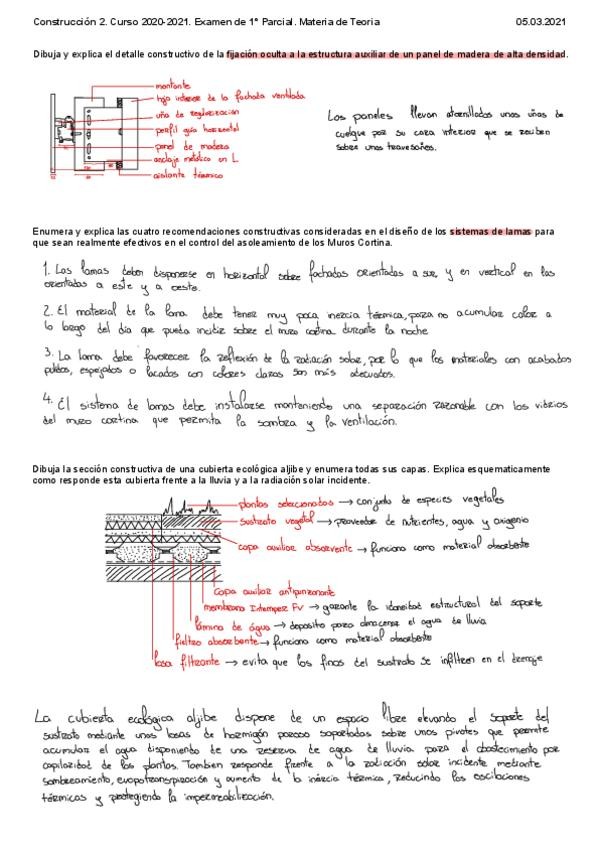 Construcción 2. Curso 2020-2021. Examen de 1º Parcial. Materia de Teoria 05.03.2021
Dibuja y explica el detalle constructivo de la fijación oculta a la estructura auxiliar de un panel de madera de alta densidad.
montante
hoja interior de la fachada ventilada
uña de regularización
perfil guía horizontal
panel de madera
anclaje metálico en L
aislante térmico
Los paneles llevan atornillados unas uñas de
cuelgue por su cara interior que se reciben
sobre unos travesaños.
Enumera y explica las cuatro recomendaciones constructivas consideradas en el diseño de los sistemas de lamas para
que sean realmente efectivos en el control del asoleamiento de los Muros Cortina.
1. Las lamas deben disponerse en horizontal sobre fachadas orientadas a sur, y en vertical en las
orientadas a este y a oeste.
2. El material de la lama debe tener muy poca inercia térmica, para no acumular calor a
lo largo del día que pueda incidir sobre el muro cortina durante la noche
3. La lama debe favorecer la reflexión de la radiación solar, por lo que los materiales con acabados
pulidos, espejados o lacados con colores claros son más adecuados.
4. El sistema de lamas debe instalarse manteniendo una separación razonable con los vidrios
del muro cortina que permita la sombra y la ventilación.
Dibuja la sección constructiva de una cubierta ecológica aljibe y enumera todas sus capas. Explica esquematicamente
como responde esta cubierta frente a la lluvia y a la radiación solar incidente.
plantas seleccionadas → conjunto de especies vegetales
sustrato vegetal → proveedor de nutrientes, agua y oxigeno
capa auxiliar absorvente → funciona como material absorbente
capa auxiliar antipunzonante
membrana Intemper FV → garante la idoneidad estructural del soporte
lámina de agua → deposito para almacenar el agua de lluvia
fieltro absorbente → funciona como material absorbente
losa filtrante → evita que los finos del sustrato se infiltren en el drenaje
La cubierta ecológica aljibe dispone de un espacio libre elevando el soporte del
sustrato mediante unas losas de hormigón poroso soportadas sobre unos pivotes que permite
acumular el agua disponiendo de una reserva de agua de lluvia para el abastecimiento por
capilaridad de las plantas. Tambien responde frente a la radiación solar incidente mediante
sombreamiento, evapotranspiración y aumento de la inércia térmica, reducindo las oscilaciones
térmicas y protegiendo la impermeabilización.